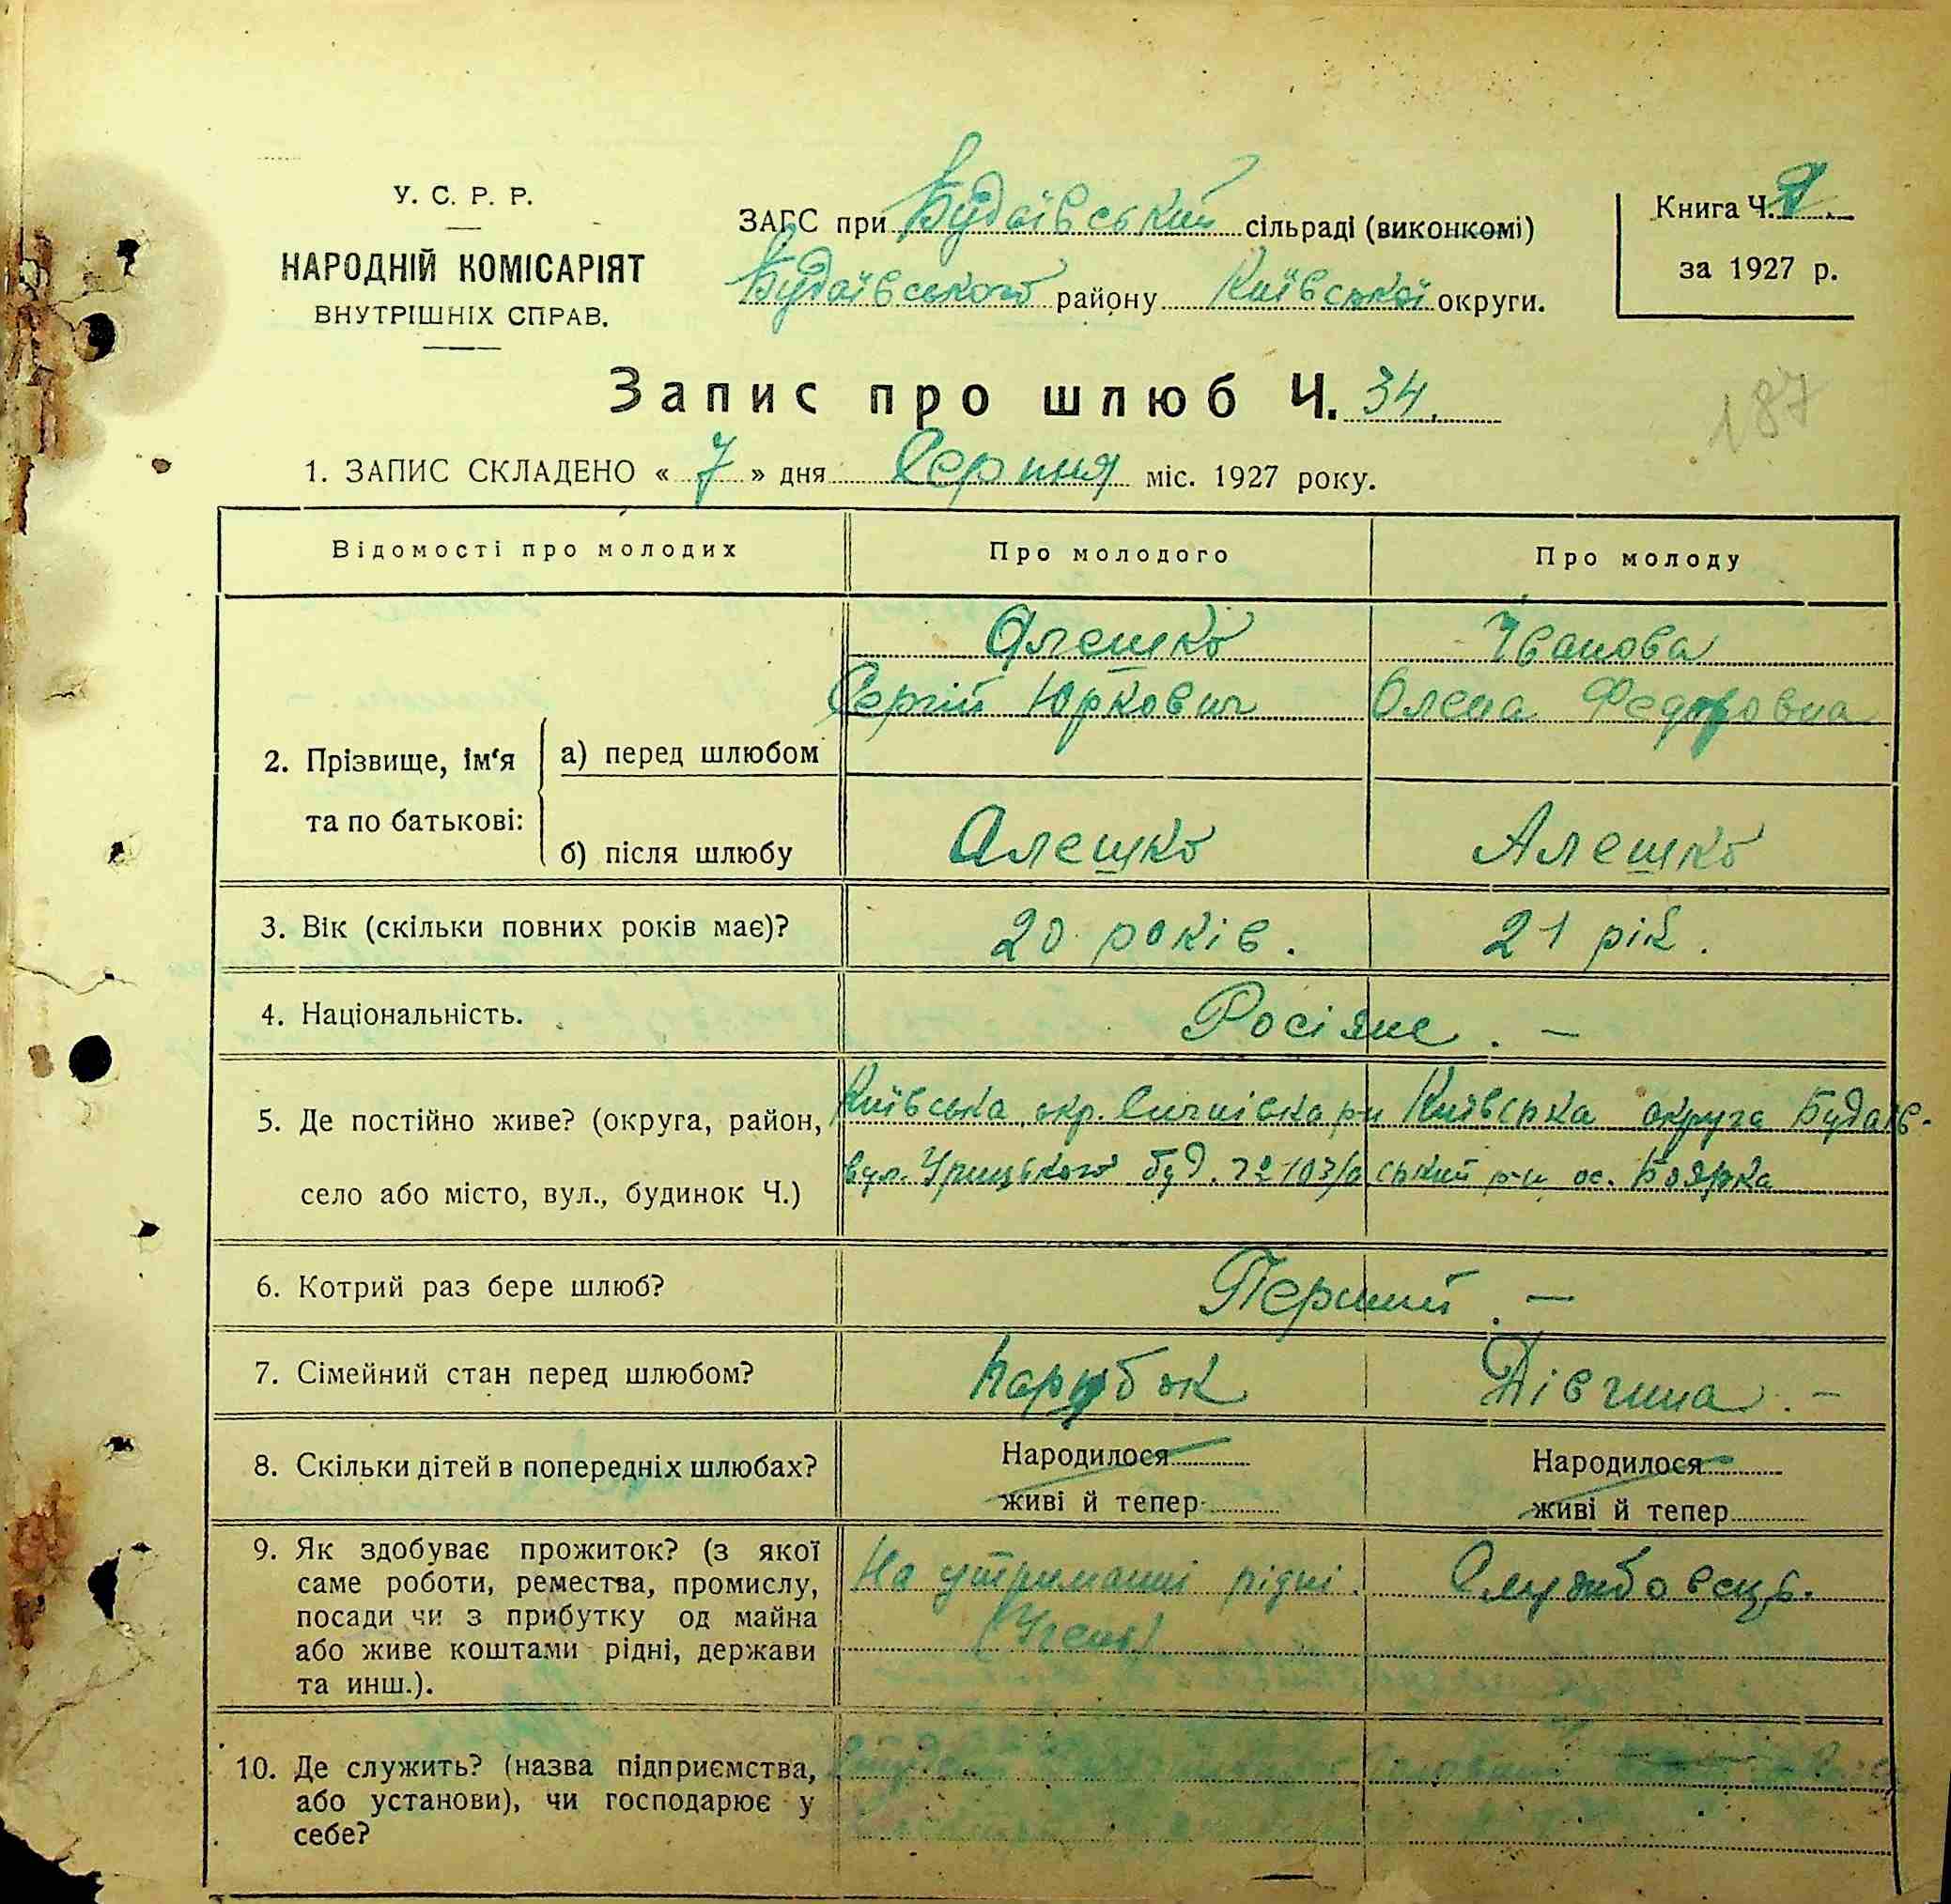 У. С. Р. Р.
НАРОДНІЙ КОМІСАРІЯТ
ВНУТРІШНІХ СПРАВ.
ЗАГС при Будаївський сільраді (виконкомі)
Будаївського району Київської округи.
Книга Ч.
за 1927 р.
Запис про шлюб Ч. 34.
187
1. ЗАПИС СКЛАДЕНО « 7 » дня Серпня міс. 1927 року.
Відомості про молодих
Про молодого
Про молоду
2. Прізвище, ім‘я
та по батькові:
а) перед шлюбом
Алешко
Сергій Юркович
Іванова
Олена Федоровна
б) після шлюбу
Алешко
Алешко
3. Вік (скільки повних років має)?
20 років.
21 рік.
4. Національність.
Росіяне. —
5. Де постійно живе? (округа, район,
село або місто, вул., будинок Ч.)
Київська окр.
вул. Урицького буд. № 103/а
Київська округа Будаїв-
ський р-н ос. Боярка
6. Котрий раз бере шлюб?
Перший. —
7. Сімейний стан перед шлюбом?
Парубок
Дівчина. —
8. Скільки дітей в попередніх шлюбах?
Народилося
живі й тепер
Народилося
живі й тепер
9. Як здобуває прожиток? (з якої
саме роботи, ремества, промислу,
посади чи з прибутку од майна
або живе коштами рідні, держави
та инш.).
На утриманні рідні.
Службовець.
10. Де служить? (назва підприємства,
або установи), чи господарює у
себе?